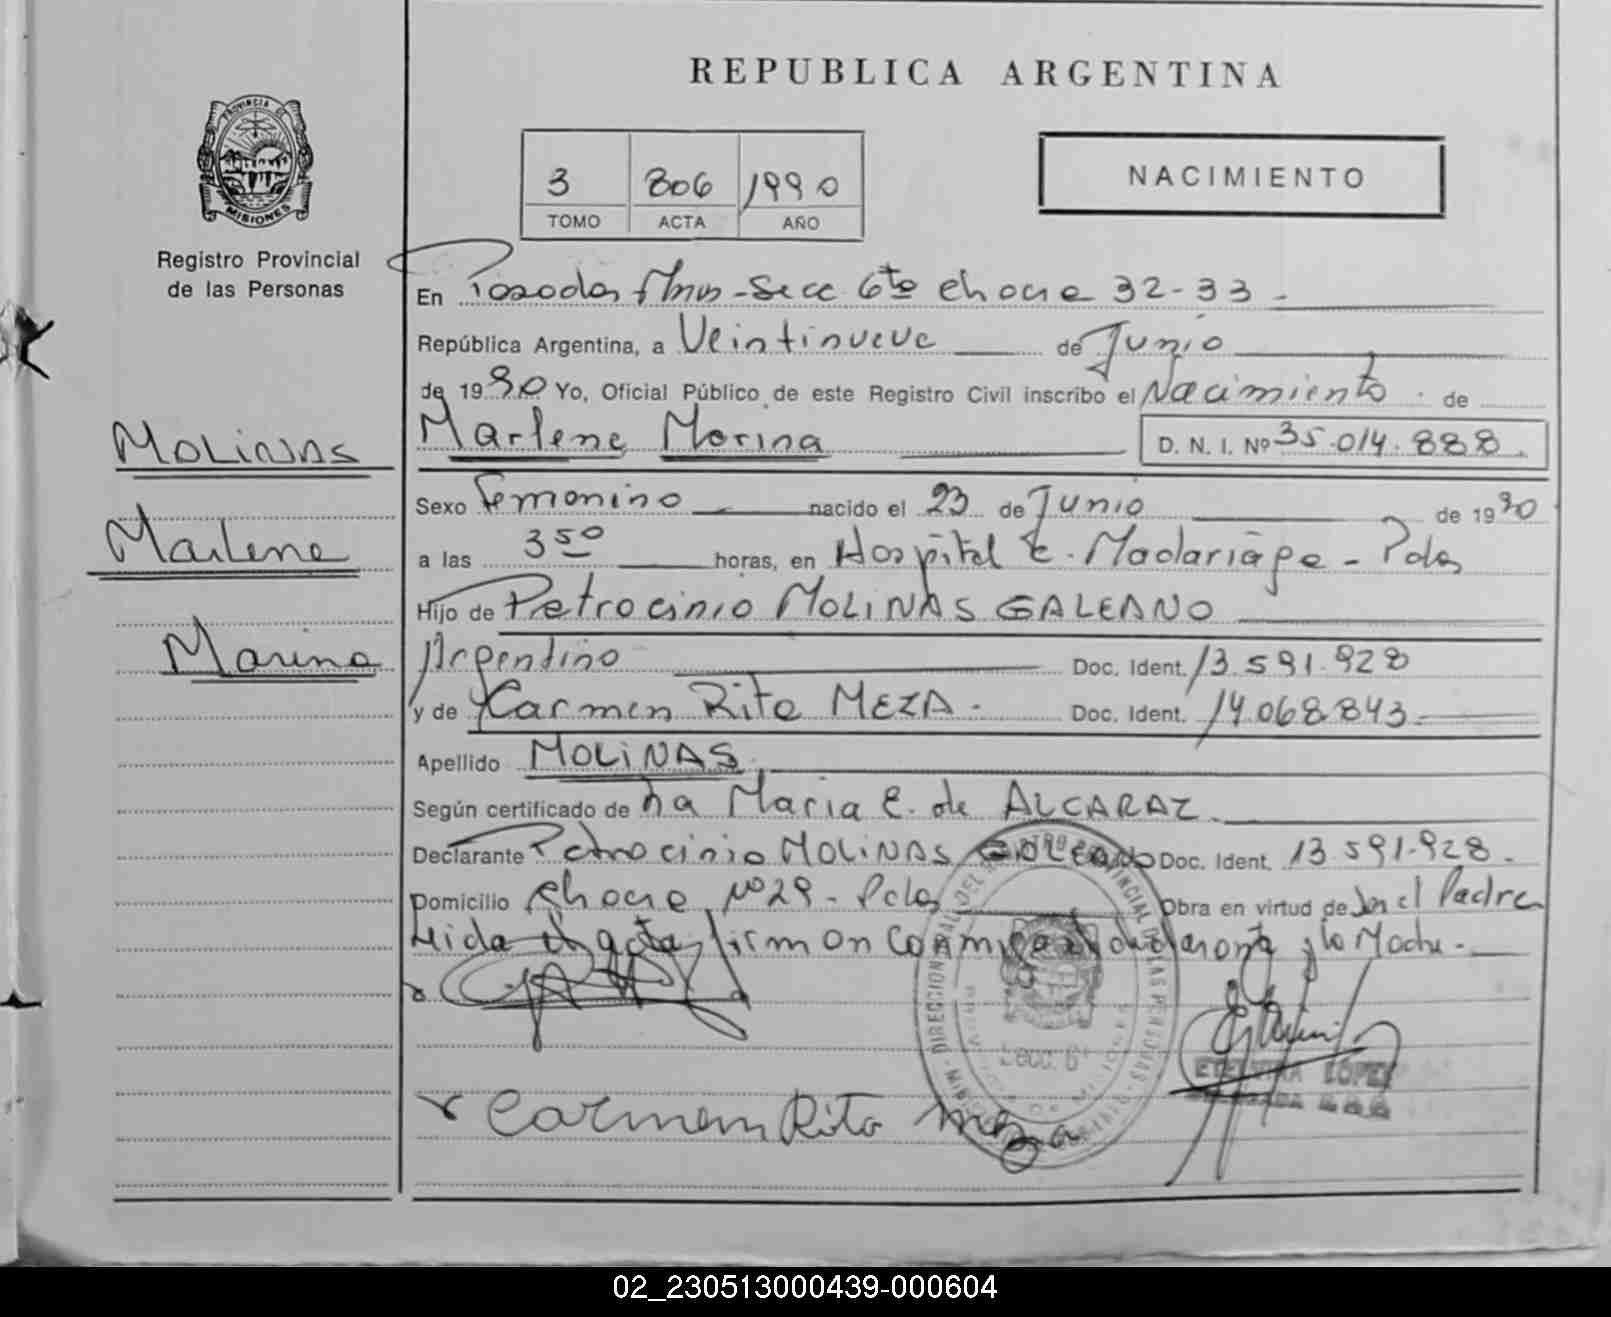 REPUBLICA ARGENTINA
PROVINCIA DE
MISIONES
Registro Provincial
de las Personas
3 806 1990
TOMO ACTA AÑO
NACIMIENTO
En Posadas Mnes - Secc 6ta chacra 32-33 -
República Argentina, a Veintinueve de Junio
de 1990 Yo, Oficial Público de este Registro Civil inscribo el Nacimiento de
Marlene Marina D. N. I. Nº 35.014.888.
MOLINAS
Marlene
Marina
Sexo Femenino nacido el 23 de Junio de 1990
a las 3 50 horas, en Hospital R. Madariaga - Pdas
Hijo de Petrocinio MOLINAS GALEANO
Argentino Doc. Ident. 13.591.928
y de Carmen Rita MEZA. Doc. Ident. 14.068.843.
Apellido MOLINAS
Según certificado de la Maria E. de ALCARAZ.
Declarante Petrocinio MOLINAS GALEANO Doc. Ident. 13.591.928.
Domicilio chacra Nº 29 - Pdas Obra en virtud de Ser el Padre
Leida el acta, firman conmigo el declarante y la Madre.
Carmen Rita Meza
Secc. 6ª
LOPEZ
02_230513000439-000604